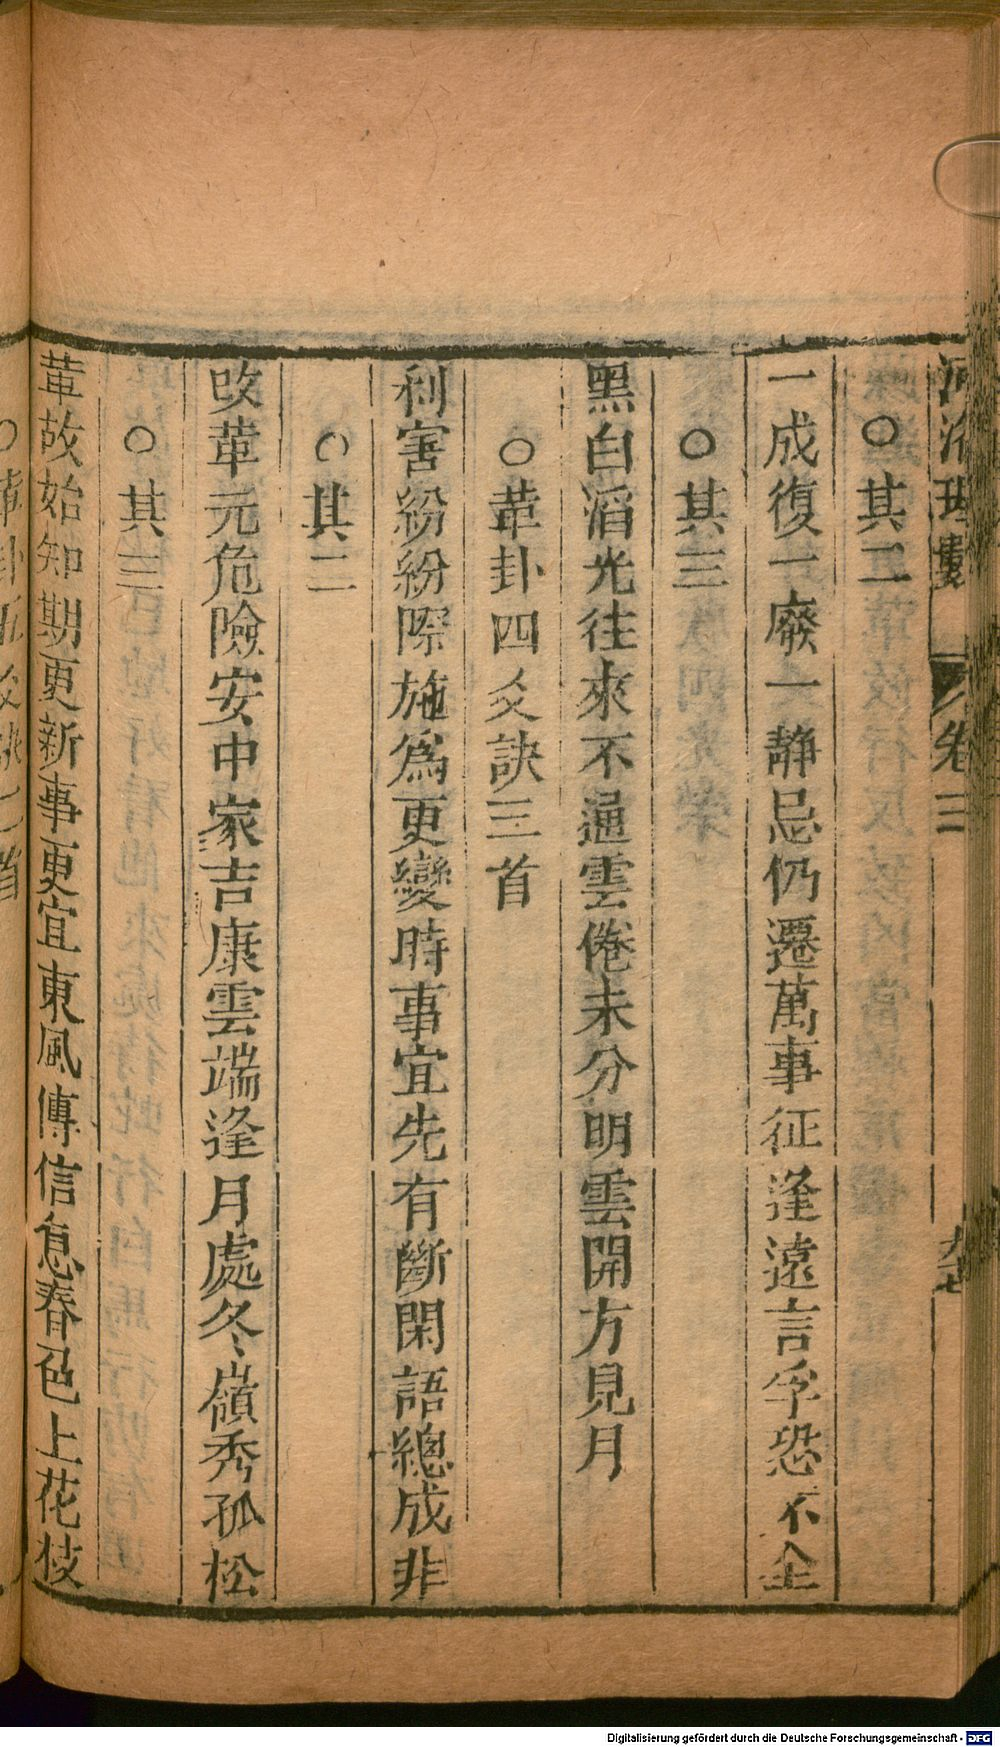 河洛理數 卷三
○其二
一成復一廢一靜忌仍遷萬事征逢遠言孚恐不全
○其三
黑白滔光往來不通雲倦未分明雲開方見月
○革卦四爻訣三首
利害紛紛際施爲更變時事宜先有斷閑語總成非
○其二
改革元危險安中家吉康雲端逢月處冬嶺秀孤松
○其三
革故始知期更新事更宜東風傳信息春色上花枝
○革卦五爻訣
Digitalisierung gefördert durch die Deutsche Forschungsgemeinschaft - DFG